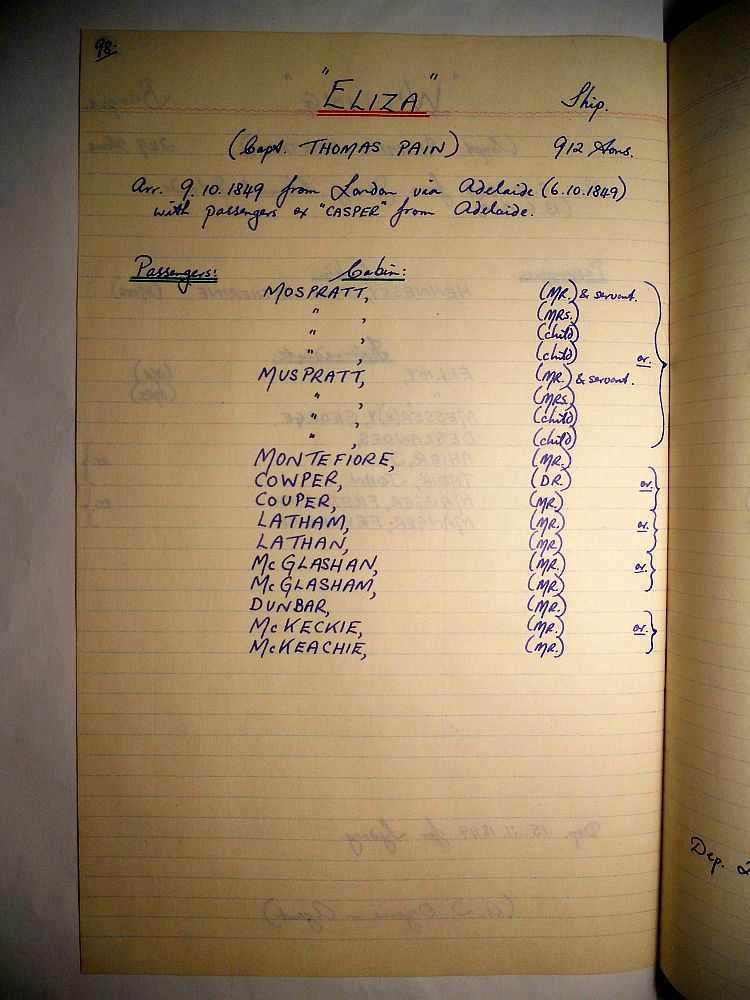 98.
"ELIZA" Ship.
(Capt. THOMAS PAIN) 912 tons.
Arr. 9.10.1849 from London via Adelaide (6.10.1849)
with passengers ex "CASPER" from Adelaide.
Passengers: Cabin:
MOSPRATT, (MR.) & servant.
" , (MRS.)
" , (child)
" , (child) or.
MUSPRATT, (MR.) & servant.
" , (MRS.)
" , (child)
" , (child)
MONTEFIORE, (MR.)
COWPER, (DR.) or.
COUPER, (MR.)
LATHAM, (MR.) or.
LATHAN, (MR.)
McGLASHAN, (MR.) or.
McGLASHAM, (MR.)
DUNBAR, (MR.)
McKECKIE, (MR.) or.
McKEACHIE, (MR.)
Dep. 2